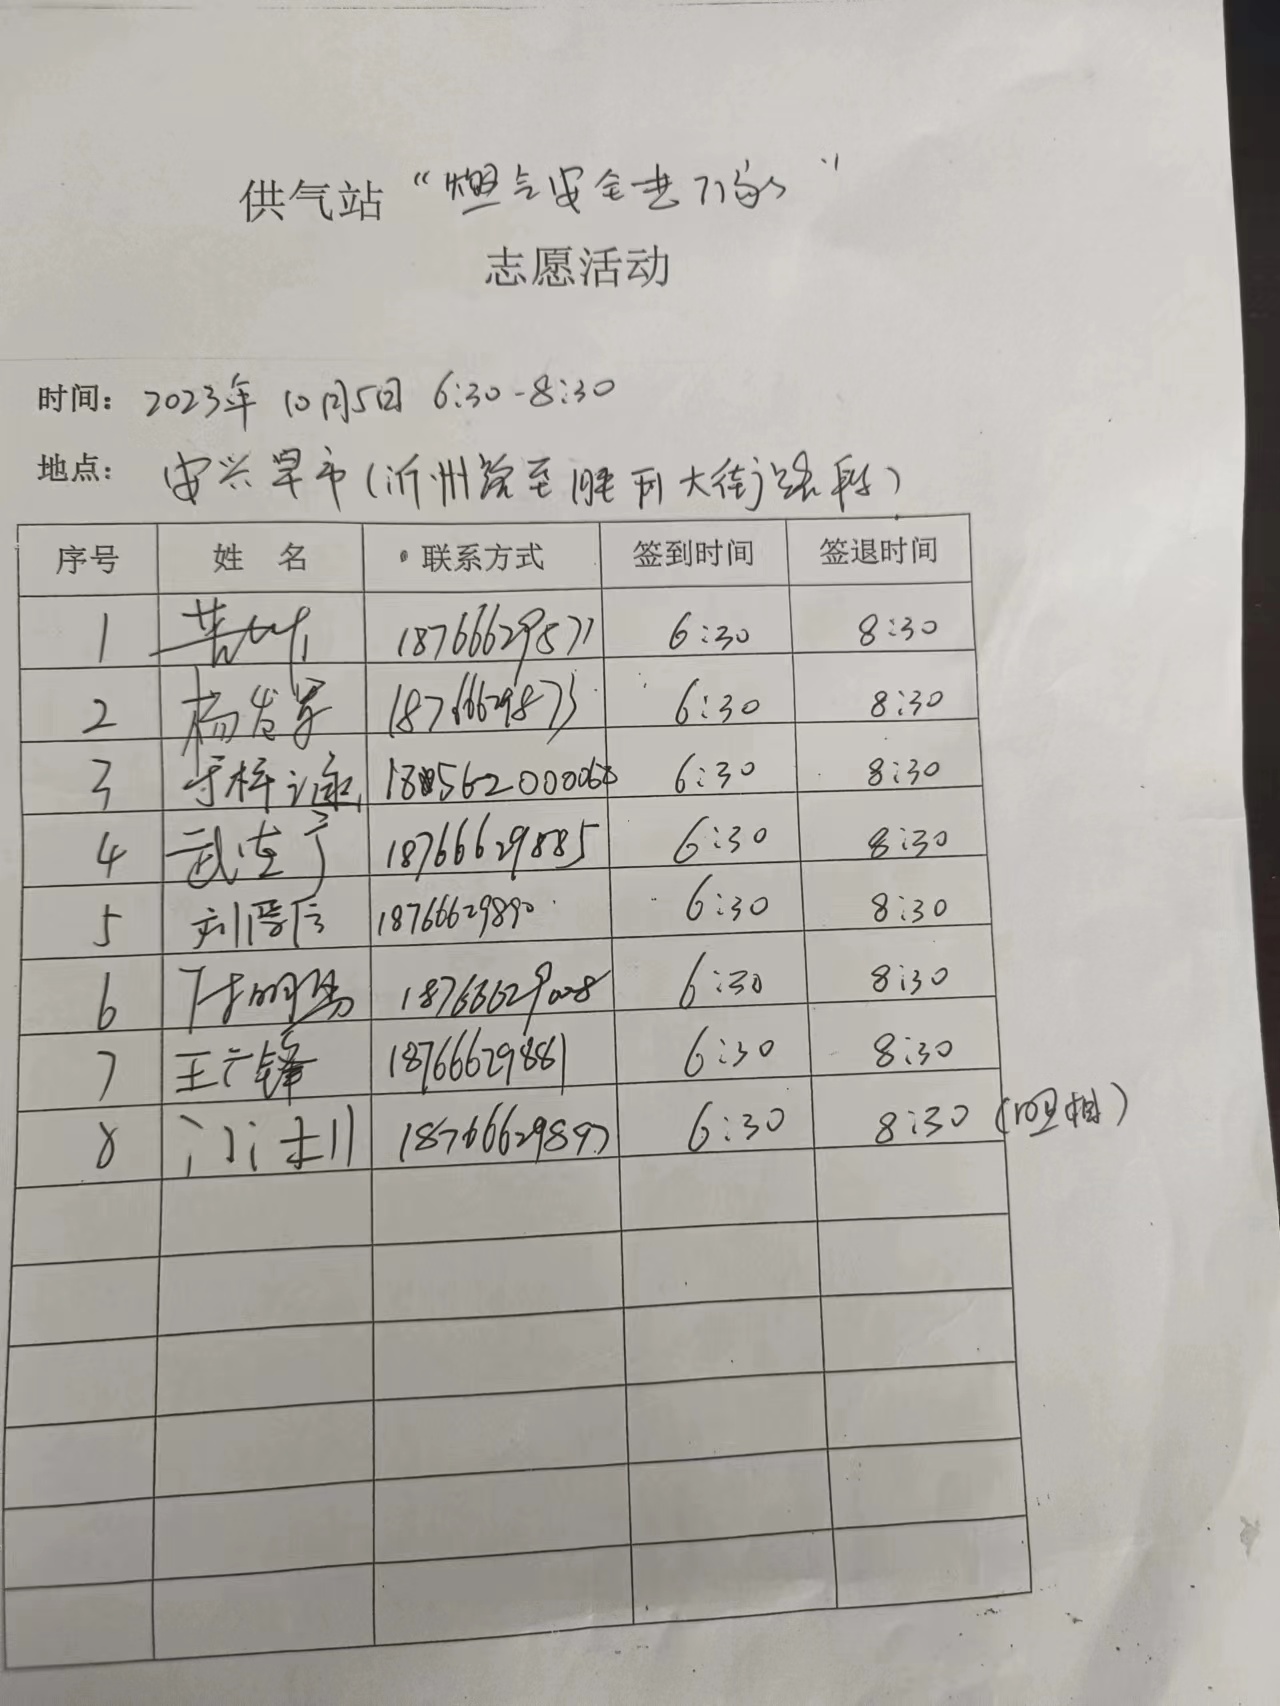 供气站“燃气安全进万家”
志愿活动
时间: 2023年10月5日 6:30-8:30
地点: 安兴早市(沂州路至胜利大街路段)
序号 姓 名 联系方式 签到时间 签退时间
1 6:30 8:30
2 杨发军 18766629873 6:30 8:30
3 6:30 8:30
4 18766629885 6:30 8:30
5 刘晋信 18766629890 6:30 8:30
6 6:30 8:30
7 王广锋 18766629881 6:30 8:30
8 18766629897 6:30 8:30 (照相)